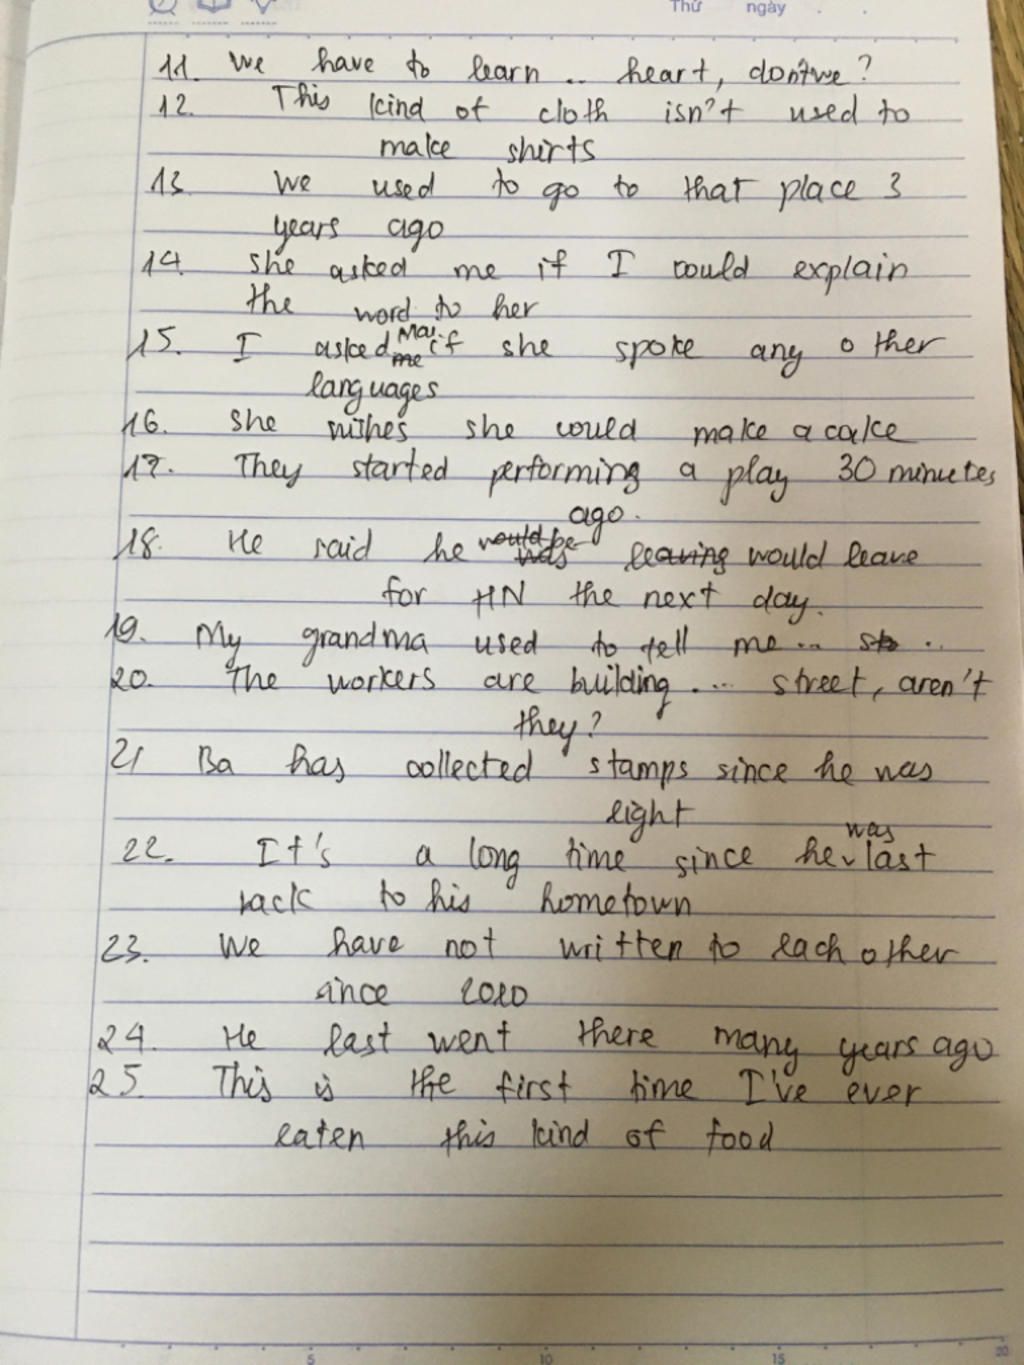 Thứ ngày . .
11. We have to learn .. heart, don't we?
12. This kind of cloth isn't used to
make shirts
13. We used to go to that place 3
years ago
14. She asked me if I could explain
the word to her
15. I asked Mai if she spoke any other
languages
16. She wishes she could make a cake
17. They started performing a play 30 minutes
ago.
18. He said he would leave
for HN the next day.
19. My grandma used to tell me ... ..
20. The workers are building .... street, aren't
they?
21 Ba has collected stamps since he was
eight
22. It's a long time since he was last
back to his hometown
23. We have not written to each other
since 2020
24. He last went there many years ago
25. This is the first time I've ever
eaten this kind of food
5 10 15 20